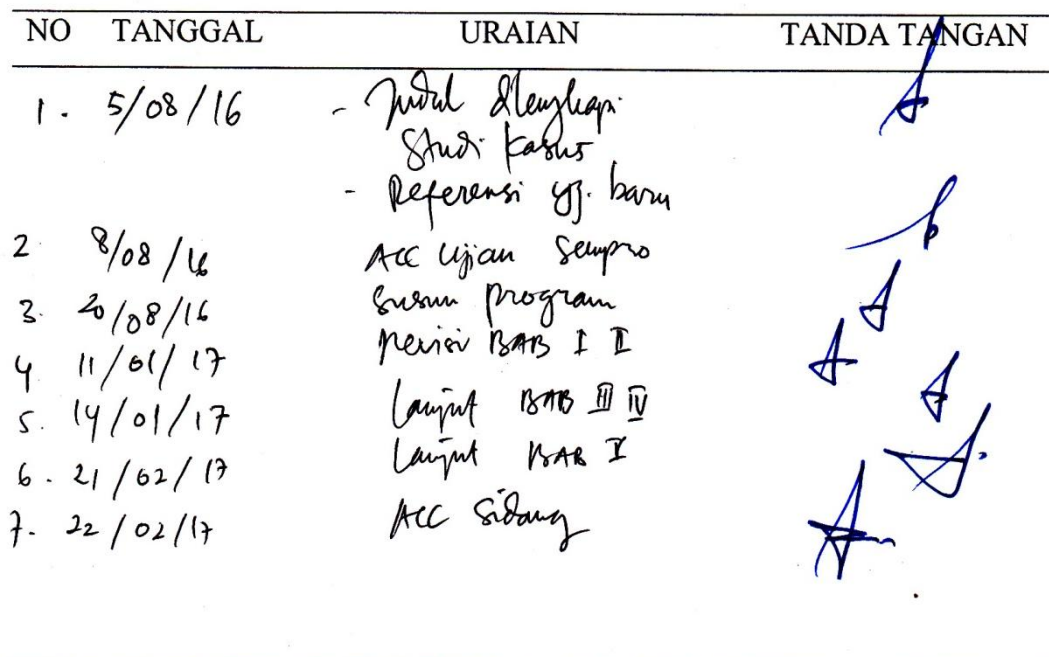 NO TANGGAL URAIAN TANDA TANGAN
1. 5/08/16 - Judul dlengkapi
Studi Kasus
- Referensi yg. baru
2 8/08/16 ACC Ujian Sempro
3. 20/08/16 Susun program
4 11/01/17 Revisi BAB I II
5. 14/01/17 Lanjut BAB III IV
6. 21/02/17 Lanjut BAB V
7. 22/02/17 ACC Sidang